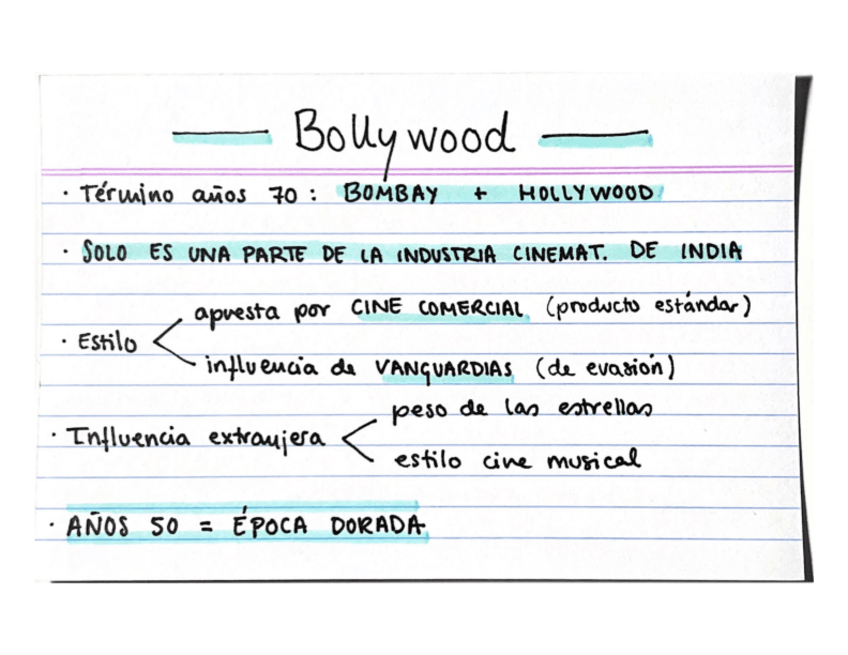 Bollywood
· Término años 70: BOMBAY + HOLLYWOOD
· SOLO ES UNA PARTE DE LA INDUSTRIA CINEMAT. DE INDIA
apuesta por CINE COMERCIAL (producto estándar)
· Estilo
influencia de VANGUARDIAS (de evasión)
peso de las estrellas
· Influencia extranjera
estilo cine musical
· AÑOS 50 = ÉPOCA DORADA